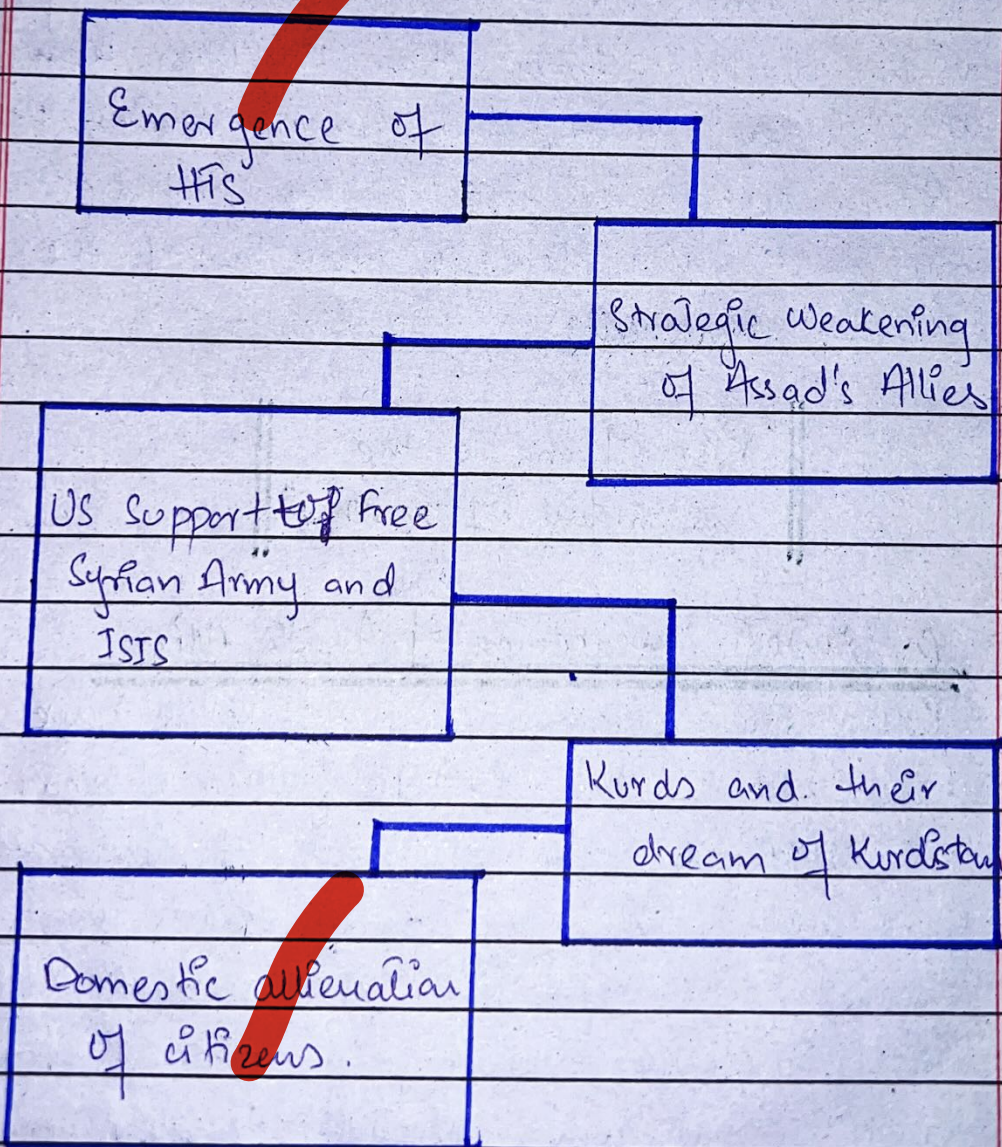 Emergence of
HTS
Strategic Weakening
of Assad's Allies
US Support to Free
Syrian Army and
ISIS
Kurds and their
dream of Kurdistan
Domestic allienation
of citizens.